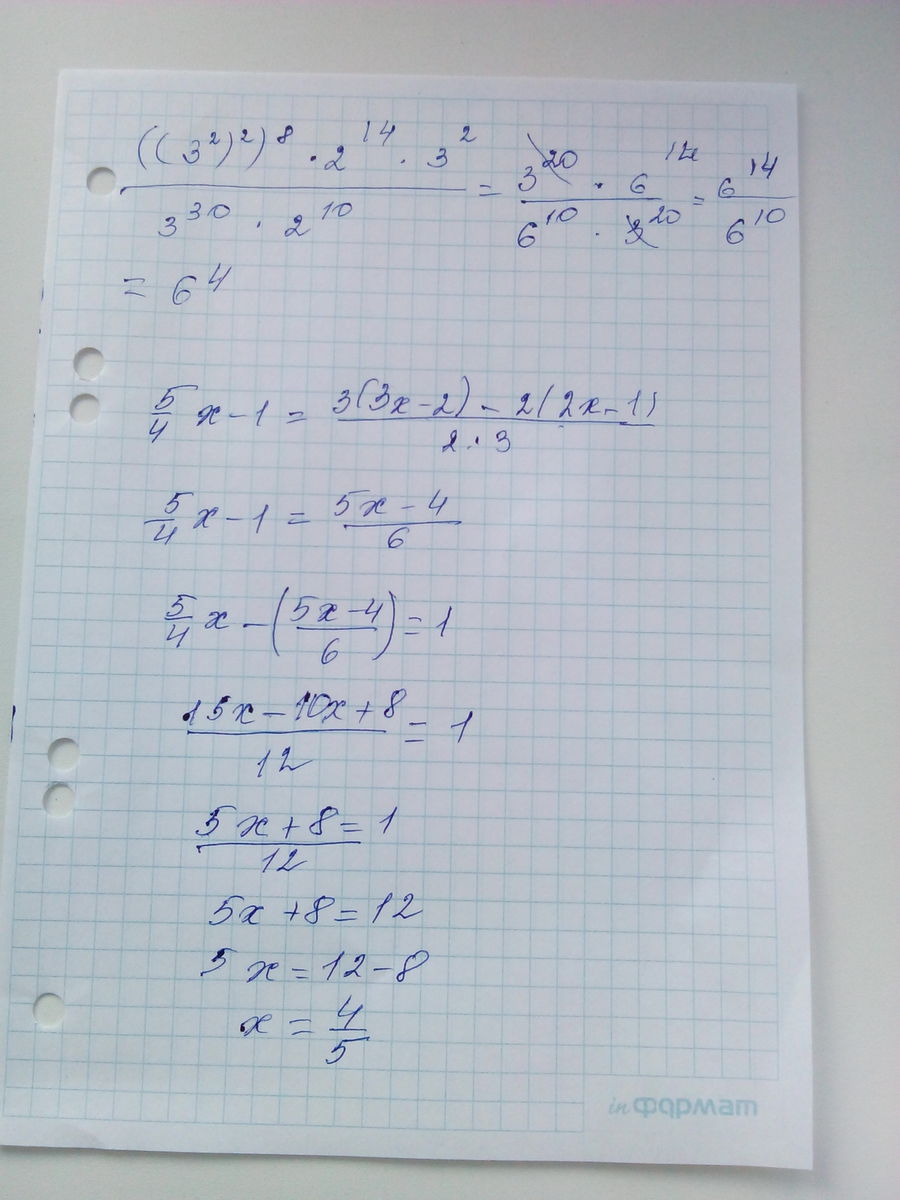 ((3²)²)⁸ · 2¹⁴ · 3² / 3³⁰ · 2¹⁰ = 3²⁰ · 6¹⁴ / 6¹⁰ · 3²⁰ = 6¹⁴ / 6¹⁰
= 6⁴
5/4 x - 1 = 3(3x-2) - 2(2x-1) / 2·3
5/4 x - 1 = 5x - 4 / 6
5/4 x - (5x-4 / 6) = 1
15x - 10x + 8 / 12 = 1
5x + 8 / 12 = 1
5x + 8 = 12
5x = 12 - 8
x = 4/5
in формат